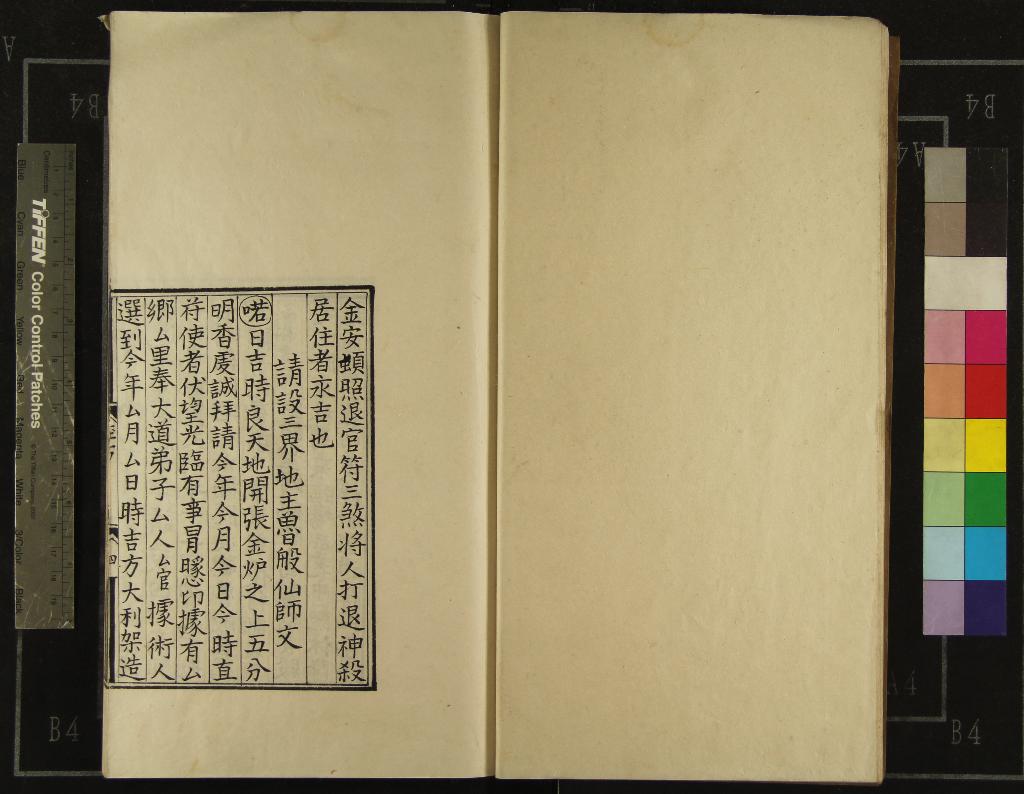 金安頭照退官符三煞將人打退神殺
居住者永吉也
請設三界地主魯般仙師文
喏日吉時良天地開張金炉之上五分
明香虔誠拜請今年今月今日今時直
符使者伏望光臨有事冒懇卬據有厶
鄉厶里奉大道弟子厶人厶官據術人
選到今年厶月厶日時吉方大利架造
四
TIFFEN Color Control Patches
Centimetres
Inches
Blue Cyan Green Yellow Red Magenta White 3/Color Black
© The Tiffen Company, 2007
A
B4
B4
A4
A4
B4
B4